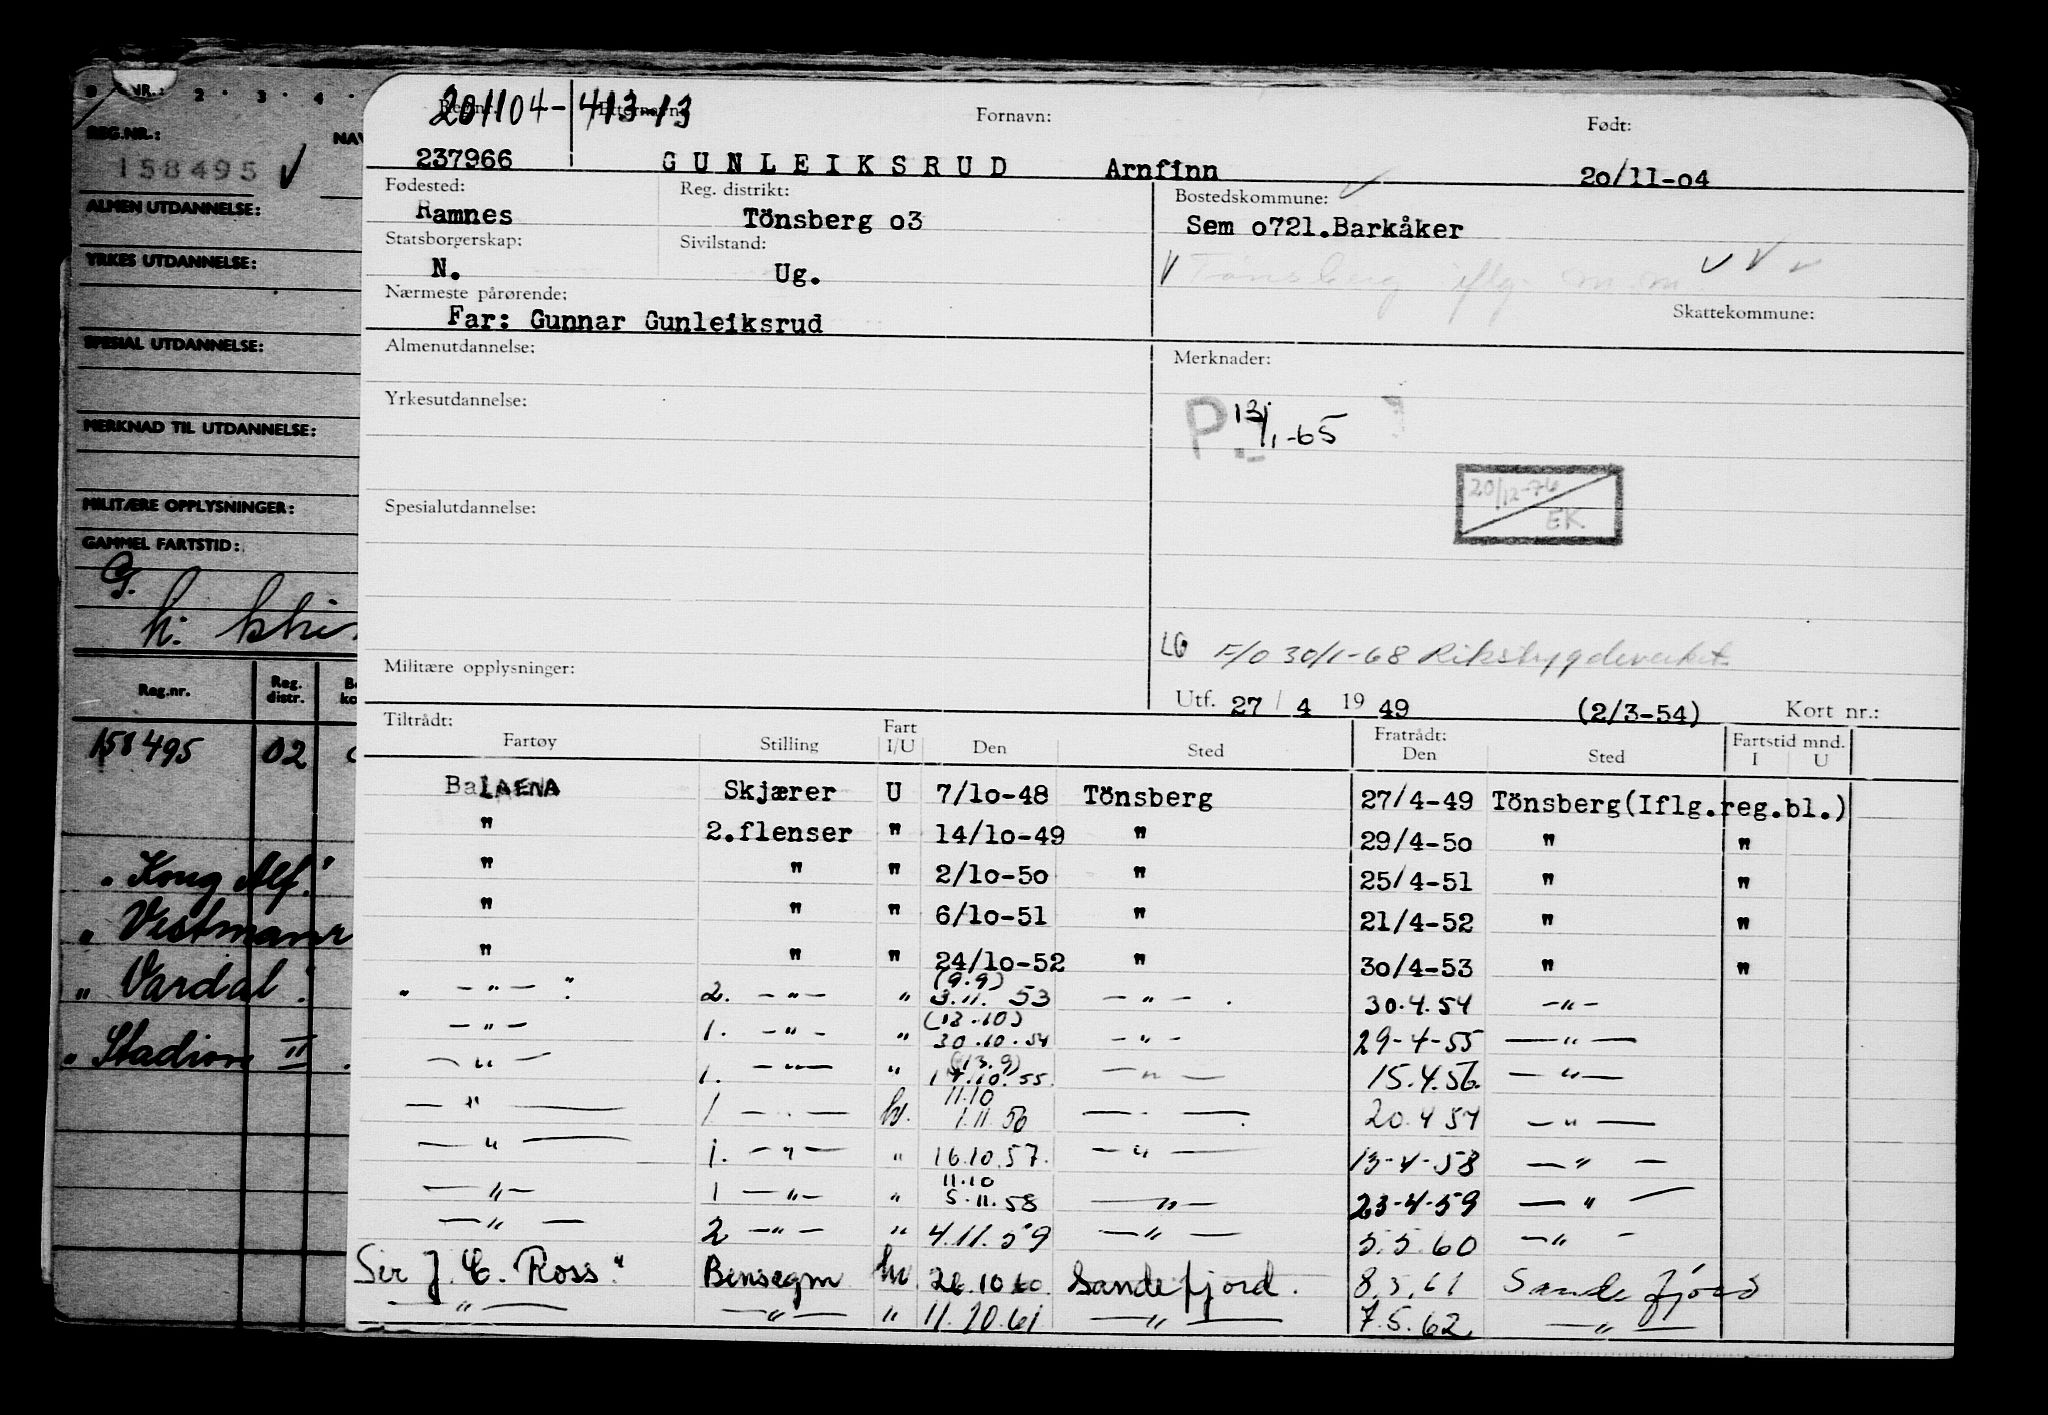 NR.: 2 · 3 · 4 ·
REG.NR.: NAV
158495 √
ALMEN UTDANNELSE:
YRKES UTDANNELSE:
SPESIAL UTDANNELSE:
MERKNAD TIL UTDANNELSE:
MILITÆRE OPPLYSNINGER:
GAMMEL FARTSTID:
G.
Reg.nr. Reg. distr.
158495 02
" Kong Alf."
" Vestmanr
" Vardal".
" Stadion II
201104-41313
Reg.nr. Etternavn: Fornavn: Født:
237966 GUNLEIKSRUD Arnfinn 20/11-04
Fødested: Reg. distrikt: Bostedskommune:
Ramnes Tönsberg o3 Sem o721.Barkåker
Statsborgerskap: Sivilstand:
N. Ug. Tønsberg iflg.
Nærmeste pårørende: Skattekommune:
Far: Gunnar Gunleiksrud
Almenutdannelse: Merknader:
Yrkesutdannelse: P 13/1-65
Spesialutdannelse: 20/12-76 EK.
LG F/O 30/1-68 Rikstrygdeverket
Militære opplysninger:
Utf. 27 / 4 19 49 (2/3-54) Kort nr.:
Tiltrådt: Fart Fratrådt: Fartstid mnd.
Fartøy Stilling I/U Den Sted Den Sted I U
BaLAENA Skjærer U 7/1o-48 Tönsberg 27/4-49 Tönsberg(Iflg.reg.bl.)
" 2.flenser " 14/1o-49 " 29/4-5o " "
" " " 2/1o-5o " 25/4-51 " "
" " " 6/1o-51 " 21/4-52 " "
" " " 24/1o-52 " 3o/4-53 " "
" — " — " 2. — " — " (9.9) 3.11. 53 — " — . 30.4.54 — " —
— " — 1. — " — " (12.10) 30.10.54 — " — 29-4-55 — " —
— " — 1. — " — " (13.9) 17.10.55. — " — 15.4.56. — " —
— " — 1 — . — hv. 11.10 1.11.56 — . — 20.4 57 — " —
— " — 1. — " — " 16.10.57. — " — 13-4-58 — " —
— " — 1 — " — " 11.10 5.11.58 — " — 23-4-59 — " —
— " — 2 — " — " 4.11.59 — " — 5.5.60 — " —
Sir J. C. Ross." Bensagm hv. 26.10 60. Sandefjord. 8.5.61 Sandefjord
— " — — " — " 11.10.61 — " — 7.5.62. — " —